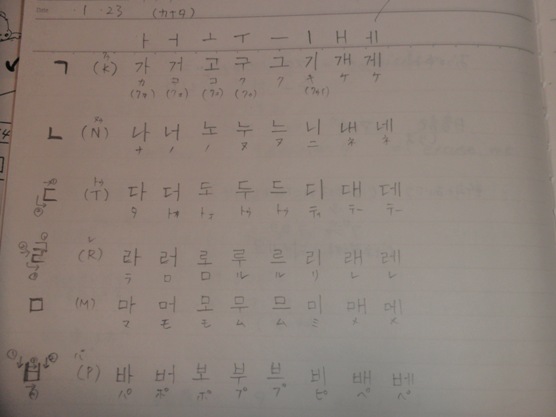 1.23
ㅏ ㅓ ㅗ ㅜ ㅡ ㅣ ㅐ ㅔ
ㄱ (K) 가 거 고 구 그 기 개 게
カ コ コ ク ク キ ケ ケ
ㄴ (N) 나 너 노 누 느 니 내 네
ナ ノ ノ ヌ ヌ ニ ネ ネ
ㄷ (T) 다 더 도 두 드 디 대 데
タ
ㄹ (R) 라 러 로 루 르 리 래 레
ラ ロ ロ ル ル リ レ レ
ㅁ (M) 마 머 모 무 므 미 매 메
マ モ モ ム ム ミ メ メ
ㅂ (P) 바 버 보 부 브 비 배 베
パ ポ ポ プ プ ピ ペ ペ